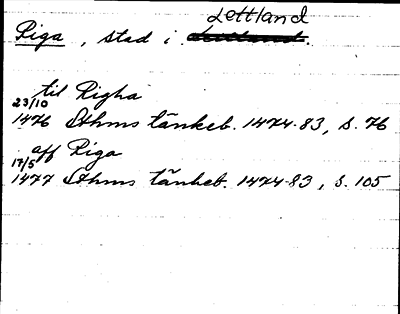 Lettland
Riga, stad i
til Righa
23/10
1476 Sthms tänkeb. 1474-83, s. 76
aff Riga
17/5
1477 Sthms tänkeb. 1474-83, s. 105